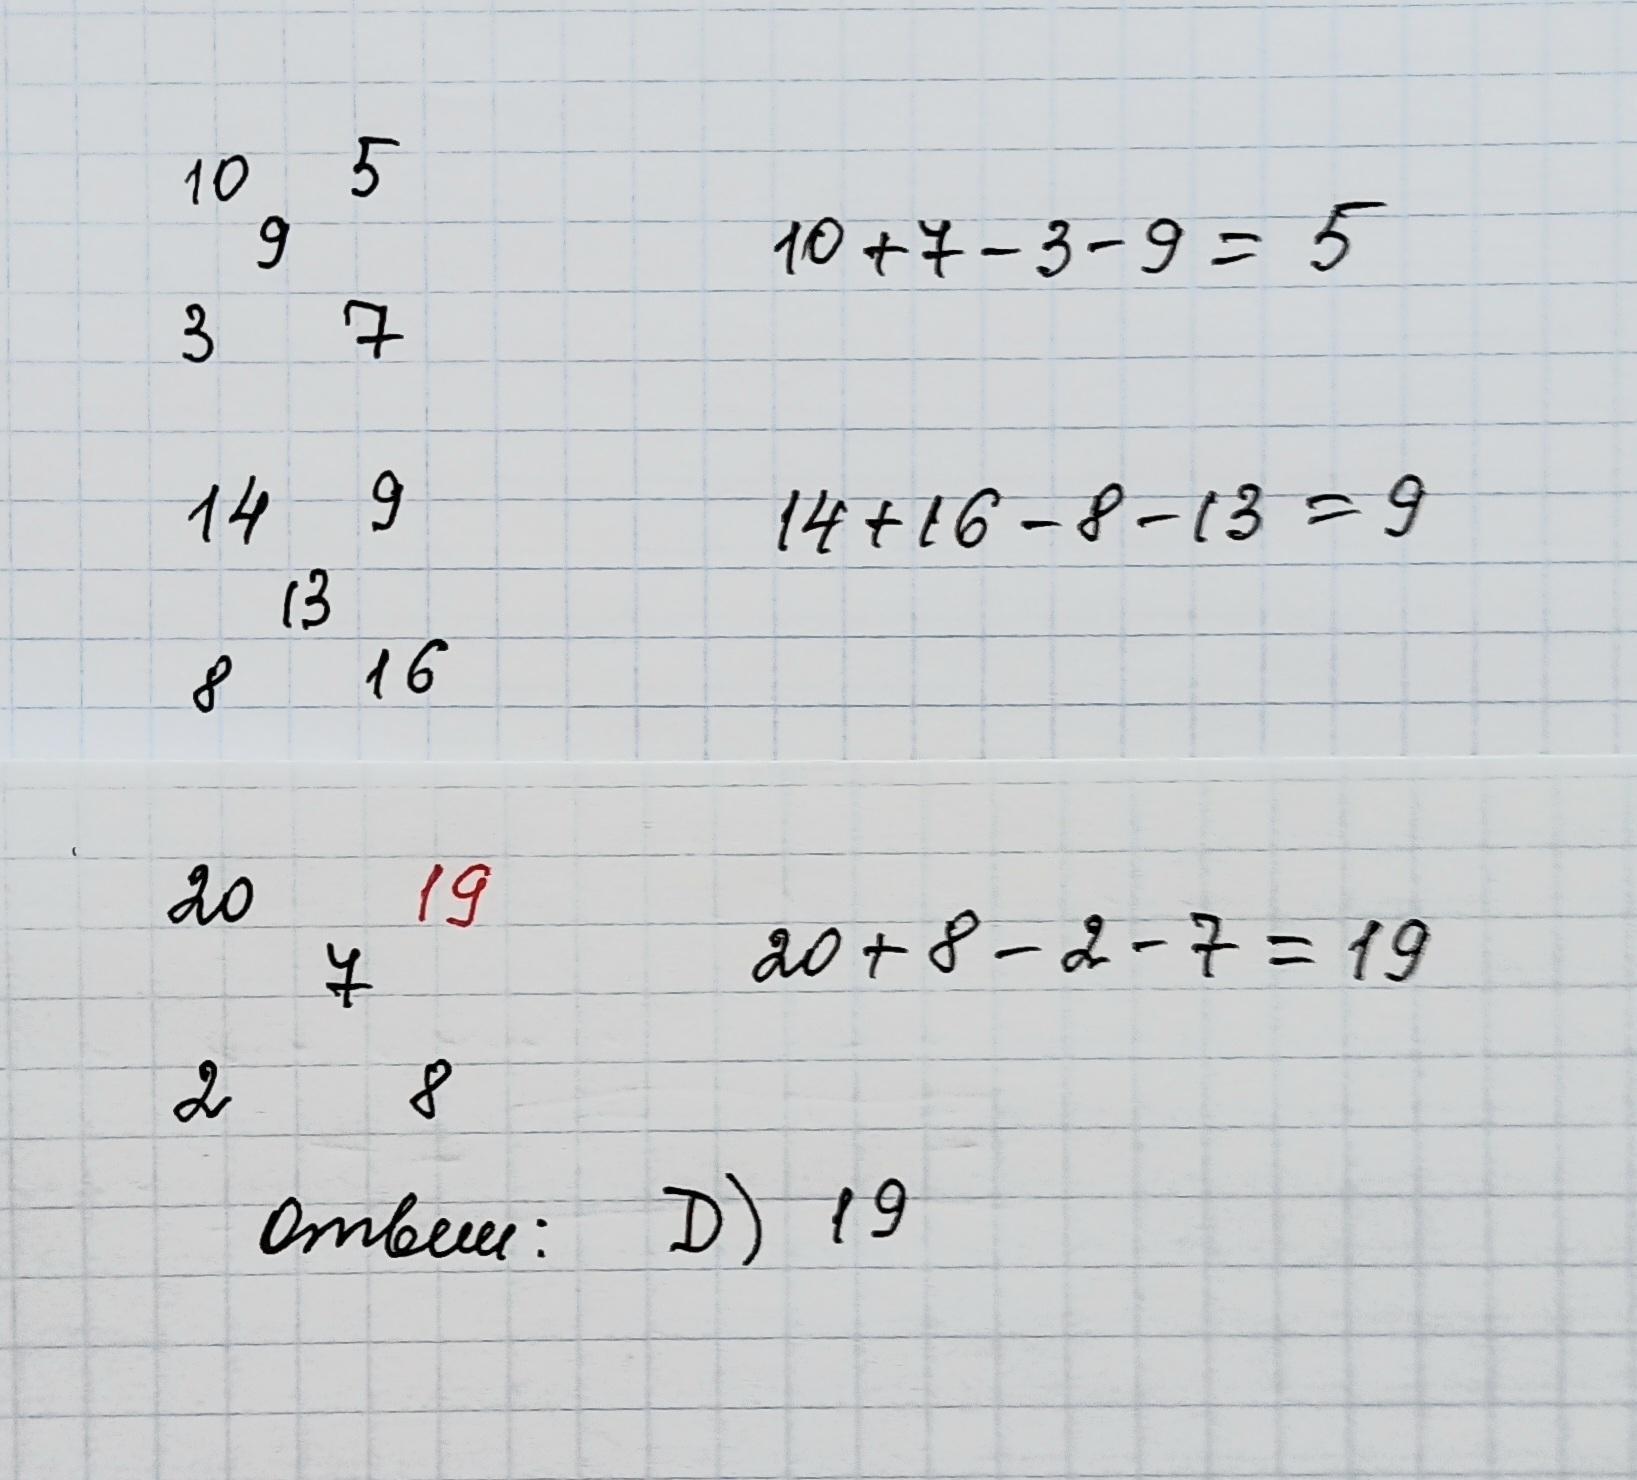 10 5
9
10 + 7 - 3 - 9 = 5
3 7
14 9
14 + 16 - 8 - 13 = 9
13
8 16
20 19
7
20 + 8 - 2 - 7 = 19
2 8
Ответ: D) 19